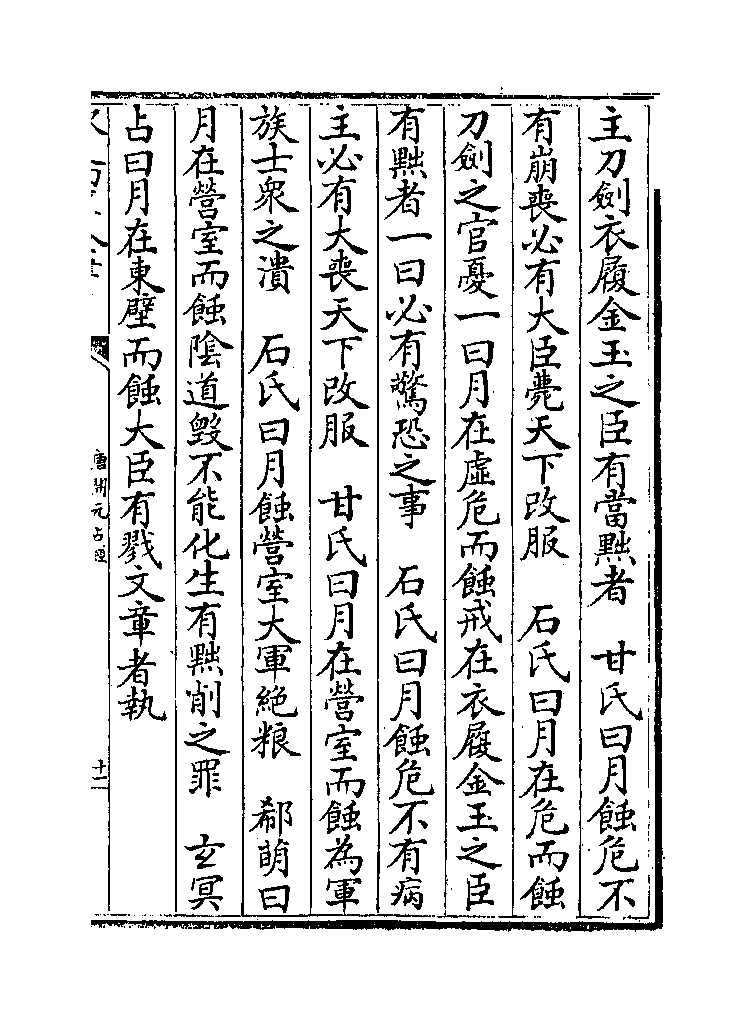 主刀劍衣履金玉之臣有當黜者　甘氏曰月蝕危不
有崩喪必有大臣薨天下改服　石氏曰月在危而蝕
刀劍之官憂一曰月在虛危而蝕戒在衣履金玉之臣
有黜者一曰必有驚恐之事　石氏曰月蝕危不有病
主必有大喪天下改服　甘氏曰月在營室而蝕為軍
族士衆之潰　石氏曰月蝕營室大軍絶粮　郗萌曰
月在營室而蝕陰道毀不能化生有黜削之罪　玄冥
占曰月在東壁而蝕大臣有戮文章者執
唐開元占經
十二